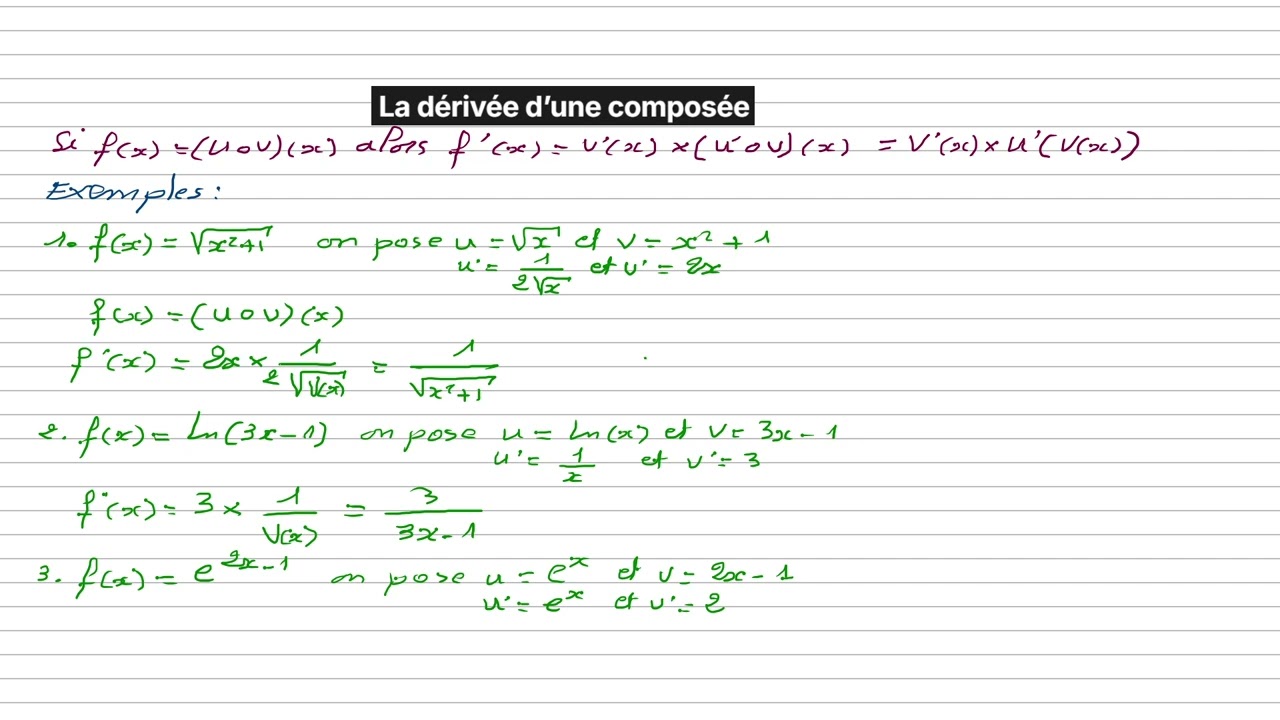 La dérivée d'une composée
Si f(x) = (u o v)(x) alors f'(x) = v'(x) × (u' o v)(x) = v'(x) × u'(v(x))
Exemples :
1. f(x) = √(x²+1) on pose u = √x et v = x² + 1
u' = 1/(2√x) et v' = 2x
f(x) = (u o v)(x)
f'(x) = 2x × 1/(2√(v(x))) = 1/√(x²+1)
2. f(x) = ln(3x-1) on pose u = ln(x) et v = 3x - 1
u' = 1/x et v' = 3
f'(x) = 3 × 1/v(x) = 3/(3x-1)
3. f(x) = e^(2x-1) on pose u = e^x et v = 2x - 1
u' = e^x et v' = 2